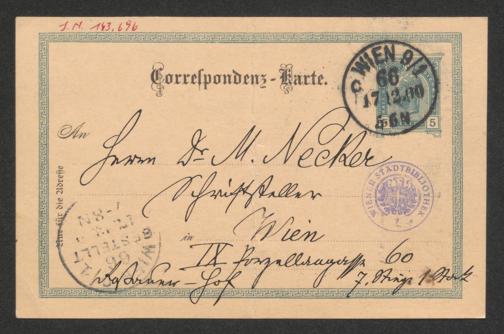 J.N. 183.696
Correspondenz-Karte.
WIEN 9/4
66
C
17.12.00
5-6N.
5
An
Herrn Dr M. Necker
Schriftsteller
in Wien
IX Porzellangasse 60
7. Stiege 1. Stock
Nur für die Adresse
WIENER STADTBIBLIOTHEK
BESTELLT
66